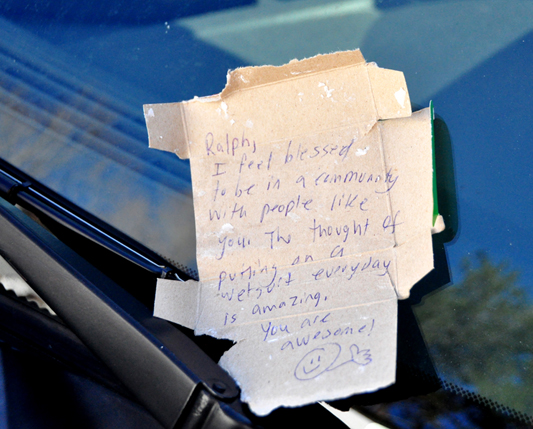 Ralph,
I feel blessed
to be in a community
with people like
you. The thought of
putting on a
wetsuit everyday
is amazing.
You are
awesome!